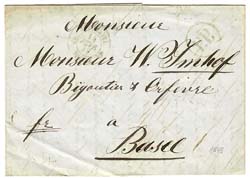 Monsieur
Monsieur W. Imhof
Bigoutier & Orfèvre
fr à
Basel